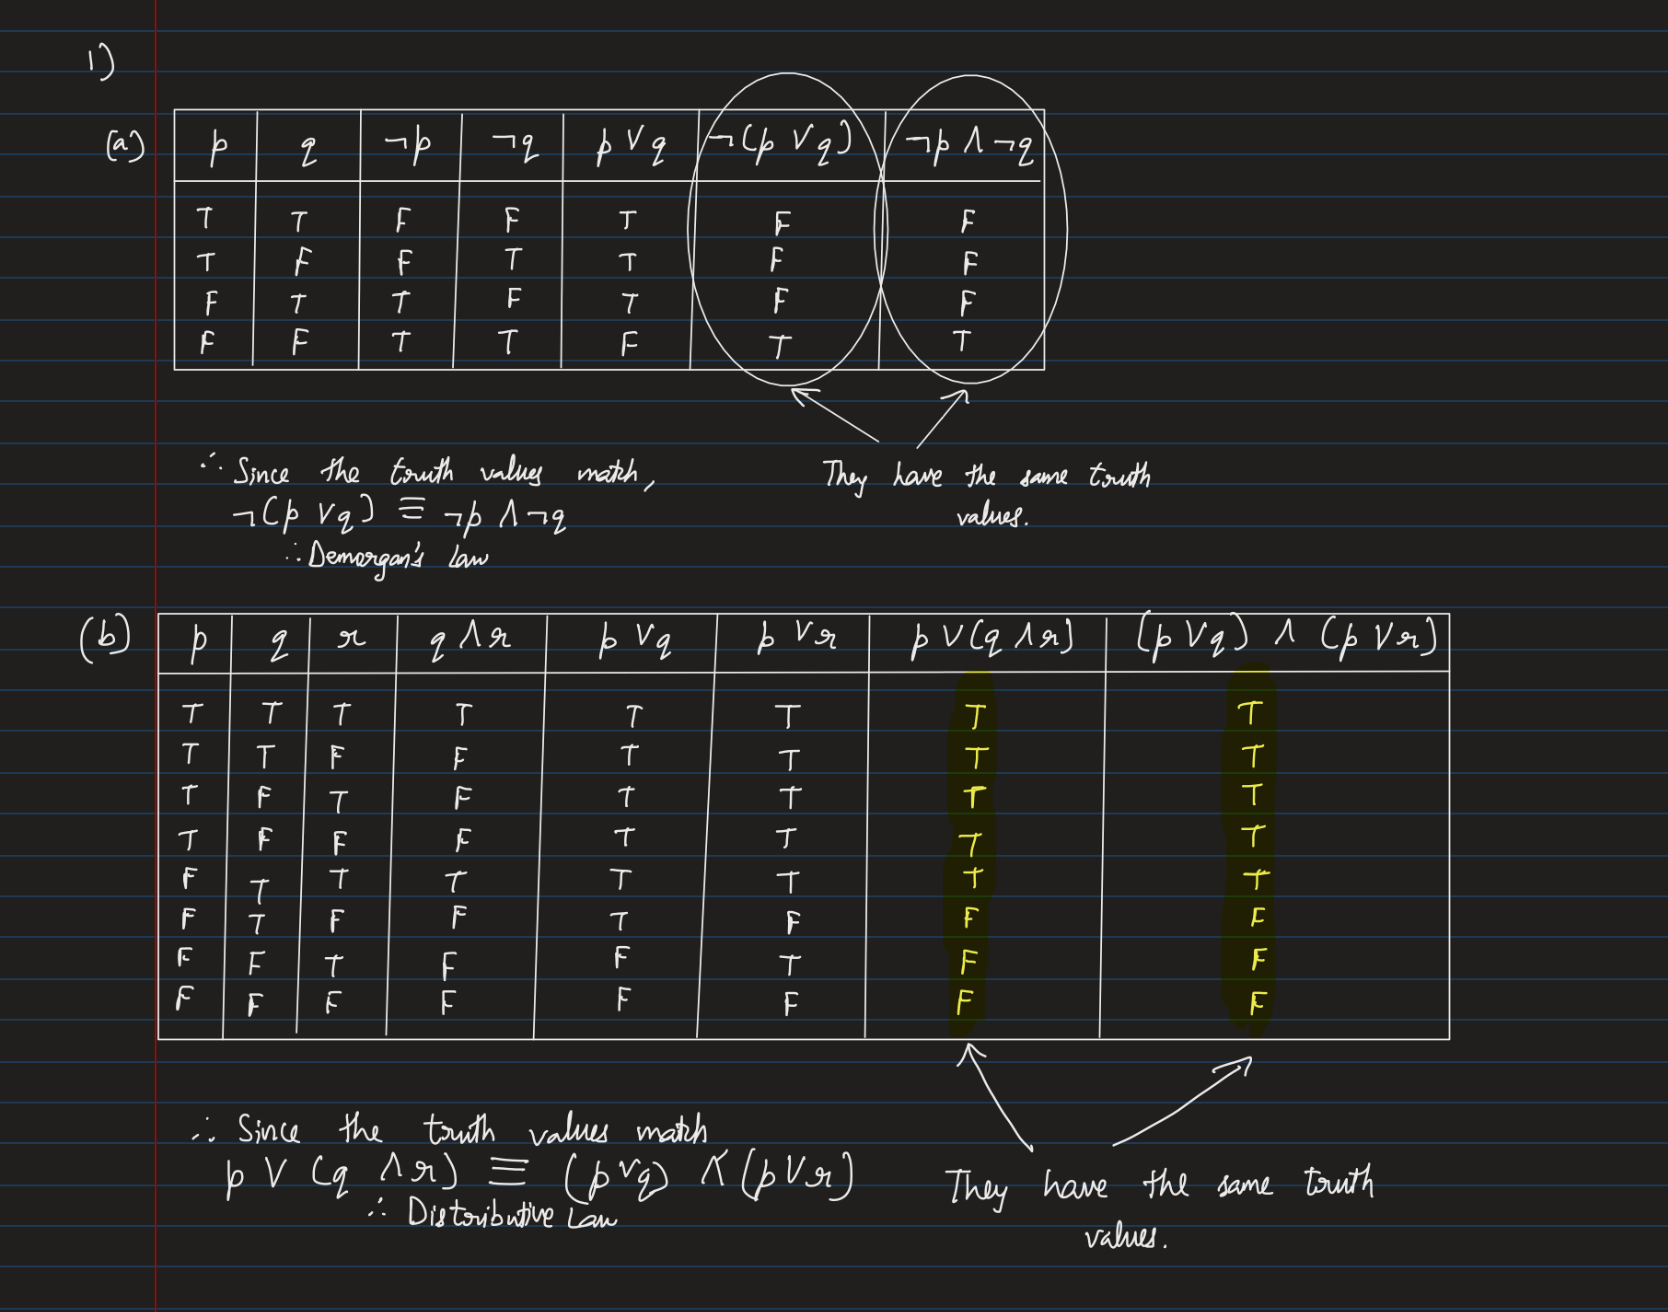 1)
(a) p q ¬p ¬q p ∨ q ¬(p ∨ q) ¬p ∧ ¬q
T T F F T F F
T F F T T F F
F T T F T F F
F F T T F T T
∴ Since the truth values match,
¬(p ∨ q) ≡ ¬p ∧ ¬q
∴ Demorgan's Law
They have the same truth
values.
(b) p q r q ∧ r p ∨ q p ∨ r p ∨ (q ∧ r) (p ∨ q) ∧ (p ∨ r)
T T T T T T T T
T T F F T T T T
T F T F T T T T
T F F F T T T T
F T T T T T T T
F T F F T F F F
F F T F F T F F
F F F F F F F F
∴ Since the truth values match
p ∨ (q ∧ r) ≡ (p ∨ q) ∧ (p ∨ r)
∴ Distributive Law
They have the same truth
values.